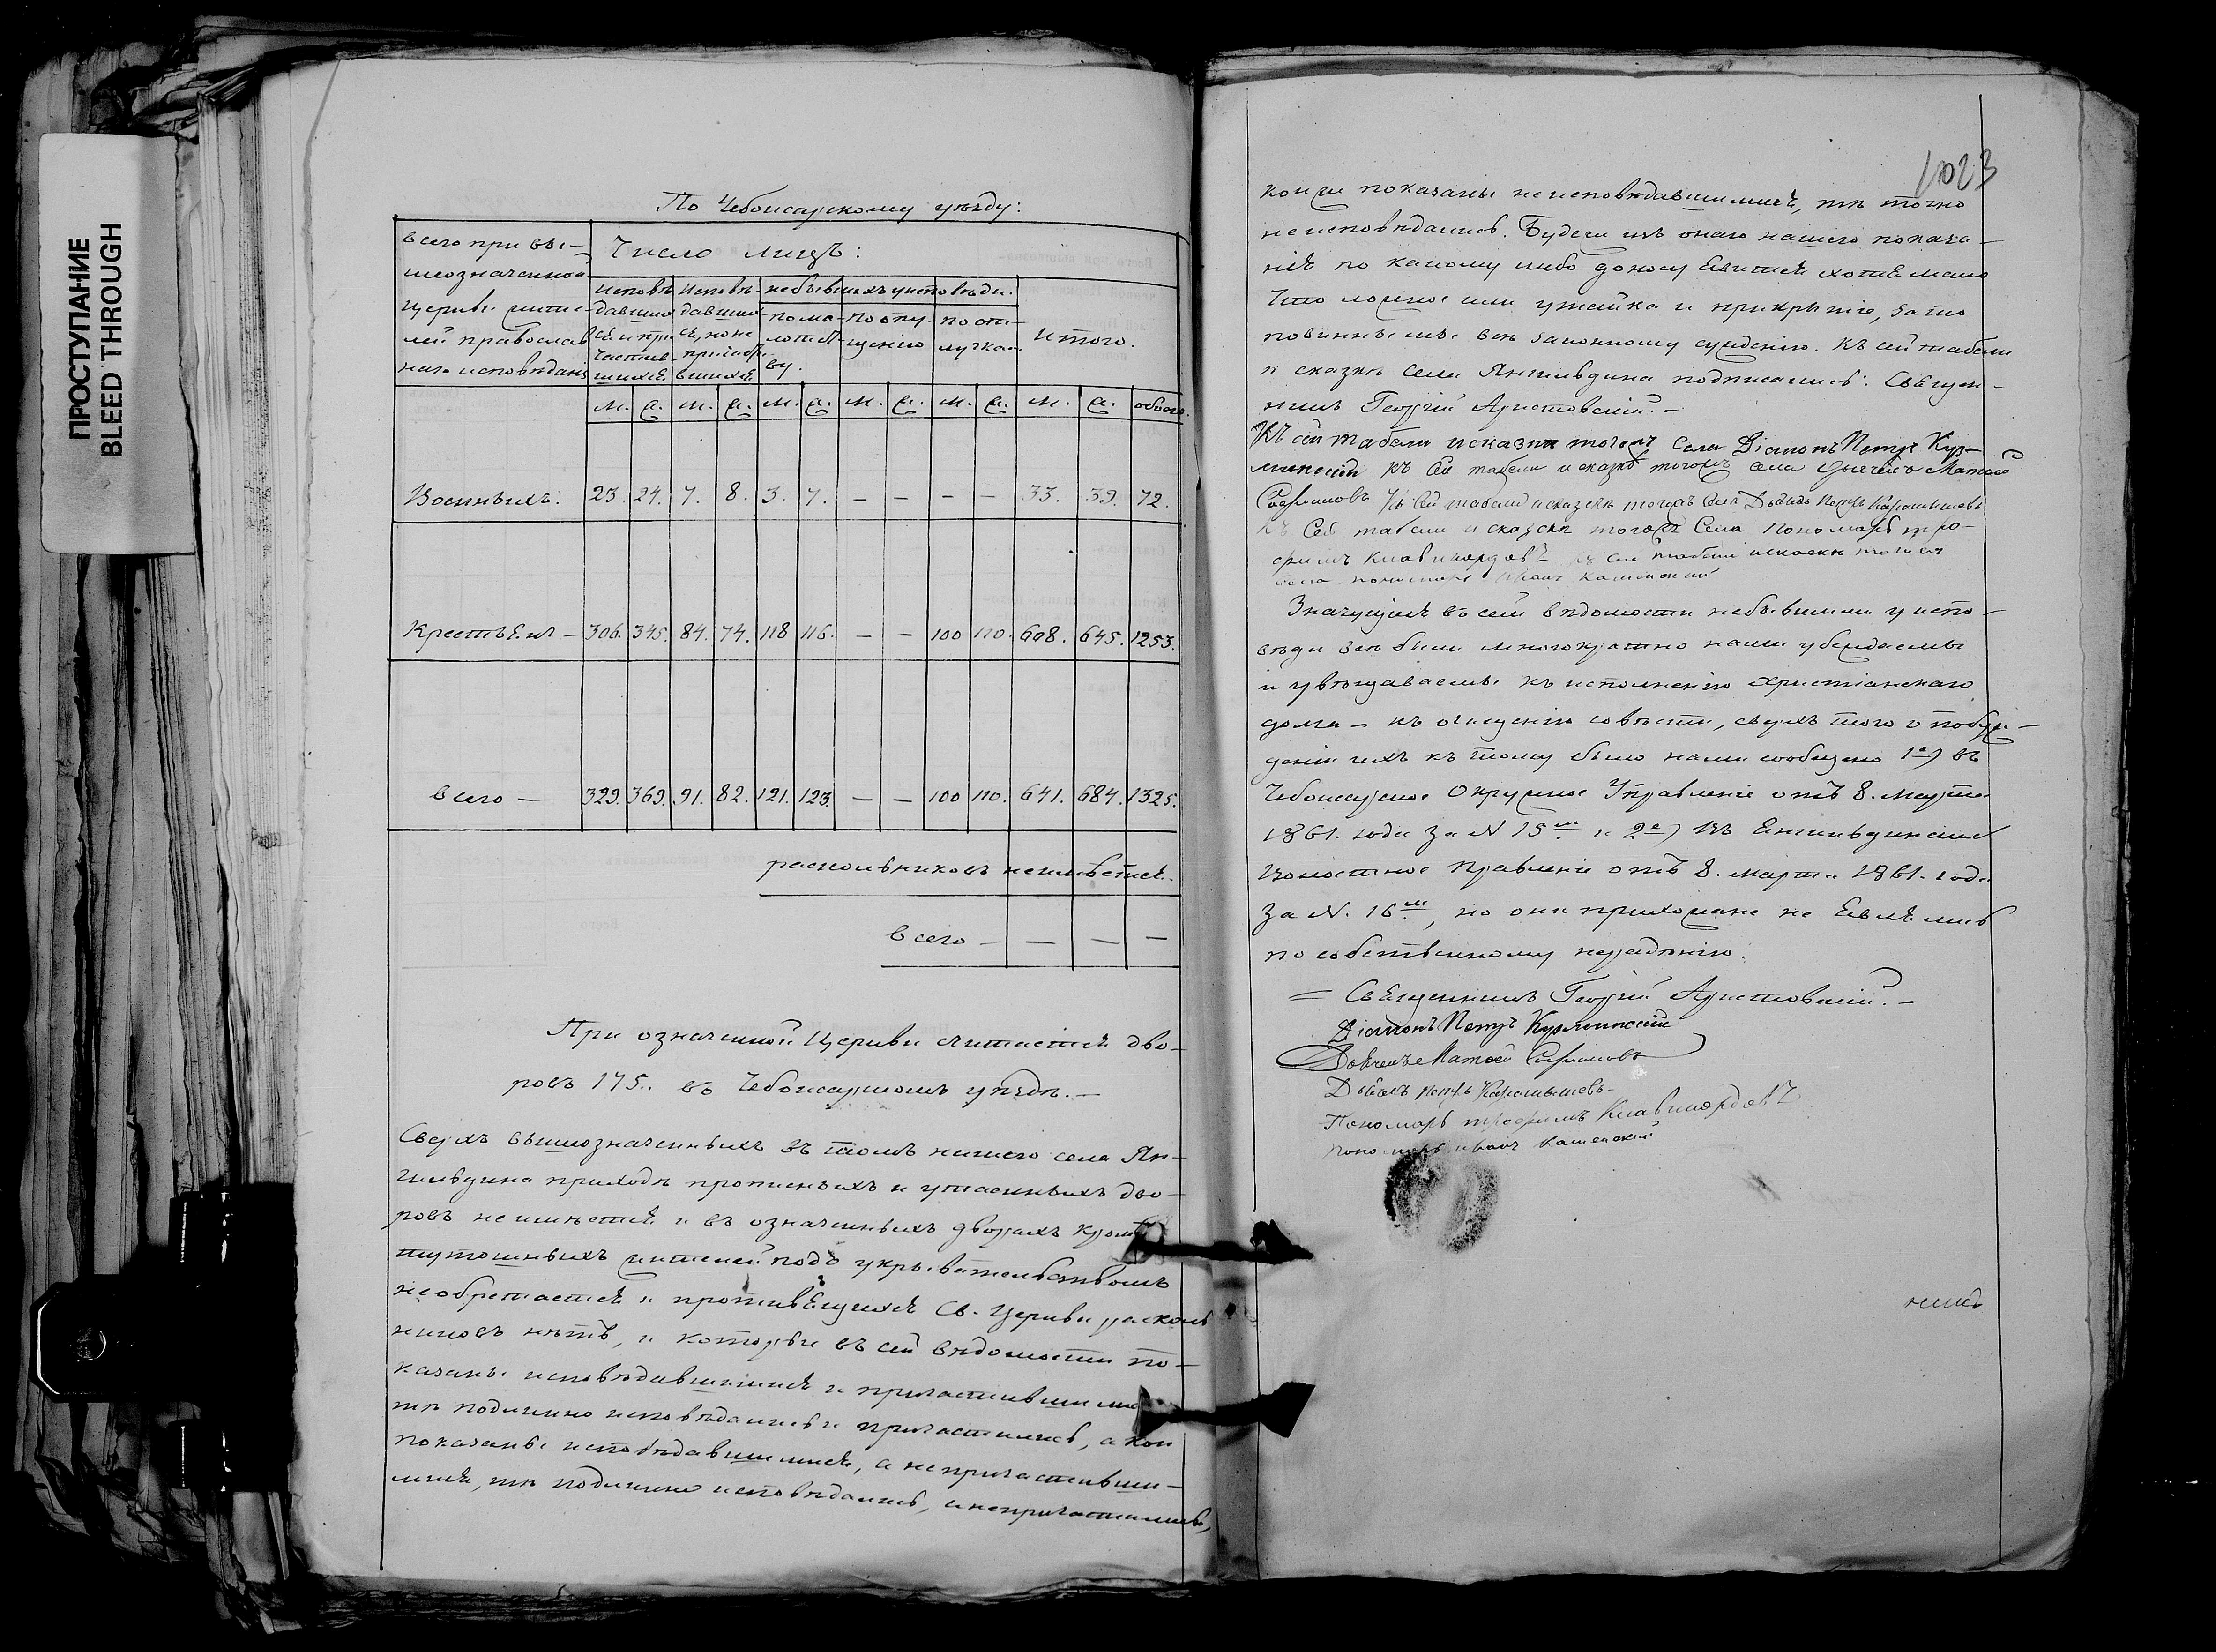 ПРОСТУПАНИЕ
BLEED THROUGH
По Чебоксарскому уѣзду:
всего при вы-
шеозначенной
Церкви жите-
лей православ
наго исповѣданія
Число лицъ:
исповѣ
давших
ся и при
частив
шихся
исповѣ-
давших
ся, но не
причаст
вшихся
небывшихъ у исповѣди.
по ма-
лолѣт-
ву.
по опу-
щенію
по от-
лучкам
итого.
м. ж. м. ж. м. ж. м. ж. м. ж. м. ж. обоего.
Военныхъ. 23. 24. 7. 8. 3. 7. — — — — 33. 39. 72.
Крестьянъ — 306. 345. 84. 74. 118 116. — — 100 110. 608. 645. 1253.
всего — 329. 369. 91. 82. 121. 123 — — 100 110. 641. 684. 1325.
раскольниковъ неимѣется.
всего — — — —
При означенной Церкви считается дво-
ровъ 175. въ Чебоксарскомъ уѣздѣ. —
Сверхъ вышеозначенныхъ въ томъ нашего села Ян-
гильдина приходѣ прописныхъ и утаенныхъ дво-
ровъ неимѣется и въ означенныхъ дворахъ кромѣ
тутошныхъ жителей подъ укрывательствомъ
необретается и противящихся Св. Церкви расколь
никовъ нѣтъ, и которые въ сей вѣдомости по-
казаны исповѣдавшимися и причастившими
тѣ подлинно исповѣдались и причастились, а кои
показаны исповѣдавшимися, а непричастивши-
мися, тѣ подлинно исповѣдались, и непричастились,
1023
кои же показаны неисповѣдавшимися, тѣ точно
неисповѣдались. Будеже изъ онаго нашего показа-
нія по какому либо доносу явится хотя мало
Что ложное или утайка и прикрытіе, за то
повинны мы все законному сужденію. Къ сей табели
и сказкѣ села Янгильдина подписались: Священ-
никъ Георгій Аристовскій. —
Къ сей табели и сказки тогожъ села Діаконъ Петръ Куз-
минскій къ сей табели и сказкѣ тогожъ села Дьячекъ Матфей
Софроновъ Къ сей табели и сказки тогожъ села Дьячекъ Петръ Карамышевъ
Къ сей табели и сказки тогожъ Села Пономарь тро-
фимъ къ сей табели и сказки тогожъ
села пономарь иванъ каменский
Значущіяся въ сей вѣдомости небывшими у испо-
вѣди всѣ были многократно нами убеждаемы
и увѣщаваемы къ исполненію христіанскаго
долга — къ очищенію совѣсти, сверхъ того о побуж-
деніи ихъ къ тому было нами сообщено 1е) въ
Чебоксарское Окружное Управленіе отъ 8. Марта
1861. года за N 15м и 2е) въ Янгильдинское
Волостное Правленіе отъ 8. марта 1861. года
за N. 16м, но они прихожане не явились
по собственному нерадѣнію.
= Священникъ Георгій Аристовскій. —
Діаконъ Петръ Кузминскій
Дьячекъ Матфей Софроновъ
Дьячекъ Петръ Карамышевъ
Пономарь трофимъ
пономарь иванъ каменский